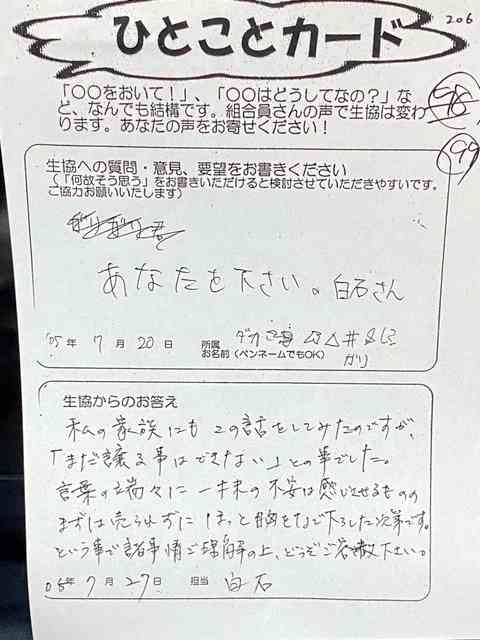 206
ひとことカード
98
99
「〇〇をおいて！」、「〇〇はどうしてなの？」な
ど、なんでも結構です。組合員さんの声で生協は変わ
ります。あなたの声をお寄せください！
生協への質問・意見、要望をお書きください
（「何故そう思う」をお書きいただけると検討させていただきやすいです。
ご協力お願いいたします）
あなたを下さい。白石さん
'05年 7月 20日 所属
お名前（ペンネームでもOK） ガリ
生協からのお答え
私の家族にもこの話をしてみたのですが、
「まだ譲る事はできない」との事でした。
言葉の端々に一抹の不安は感じさせるものの
まずは売られずにほっと胸をなで下ろした次第です。
という事で諸事情ご理解の上、どうぞご容赦下さい。
05年 7月 27日 担当 白石